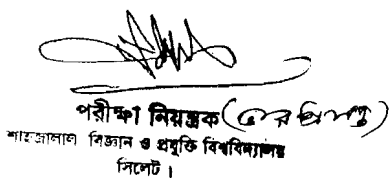 পরীক্ষা নিয়ন্ত্রক (ভারপ্রাপ্ত)
শাহজালাল বিজ্ঞান ও প্রযুক্তি বিশ্ববিদ্যালয়
সিলেট।